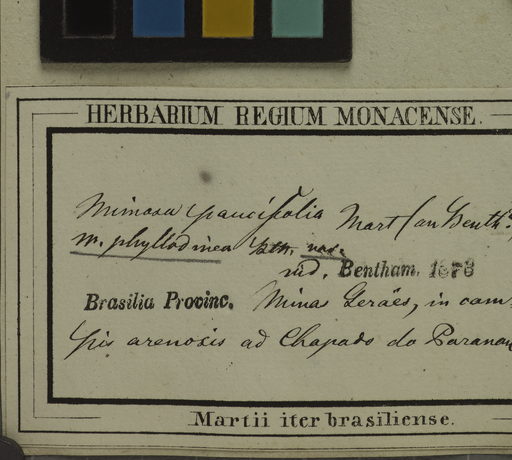 HERBARIUM REGIUM MONACENSE.
Mimosa paucifolia Mart (an Benth.
m. phyllodinea Bth. var.
vid. Bentham. 1873
Brasilia Provinc. Minas Geraës, in cam-
pis arenosis ad Chapado do Paranan
Martii iter brasiliense.